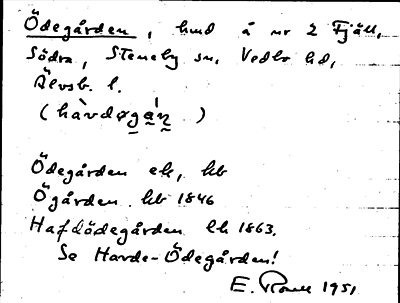 Ödegården, hmd å nr 2 Fjäll,
Södra, Steneby sn. Vedbo hd,
Älvsb. l.
(hàvdøgá̱ṉ)
Ödegården ek, kb
Ögården kb 1846
Hafdödegården lk 1863.
Se Harde-Ödegården!
E. 1951